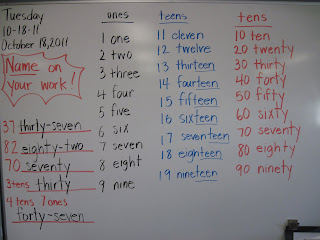 Tuesday
10-18-11
October 18, 2011
Name on
your work!
37 thirty-seven
82 eighty-two
70 seventy
3 tens thirty
4 tens 7 ones
forty-seven
ones
1 one
2 two
3 three
4 four
5 five
6 six
7 seven
8 eight
9 nine
teens
11 eleven
12 twelve
13 thirteen
14 fourteen
15 fifteen
16 sixteen
17 seventeen
18 eighteen
19 nineteen
tens
10 ten
20 twenty
30 thirty
40 forty
50 fifty
60 sixty
70 seventy
80 eighty
90 ninety